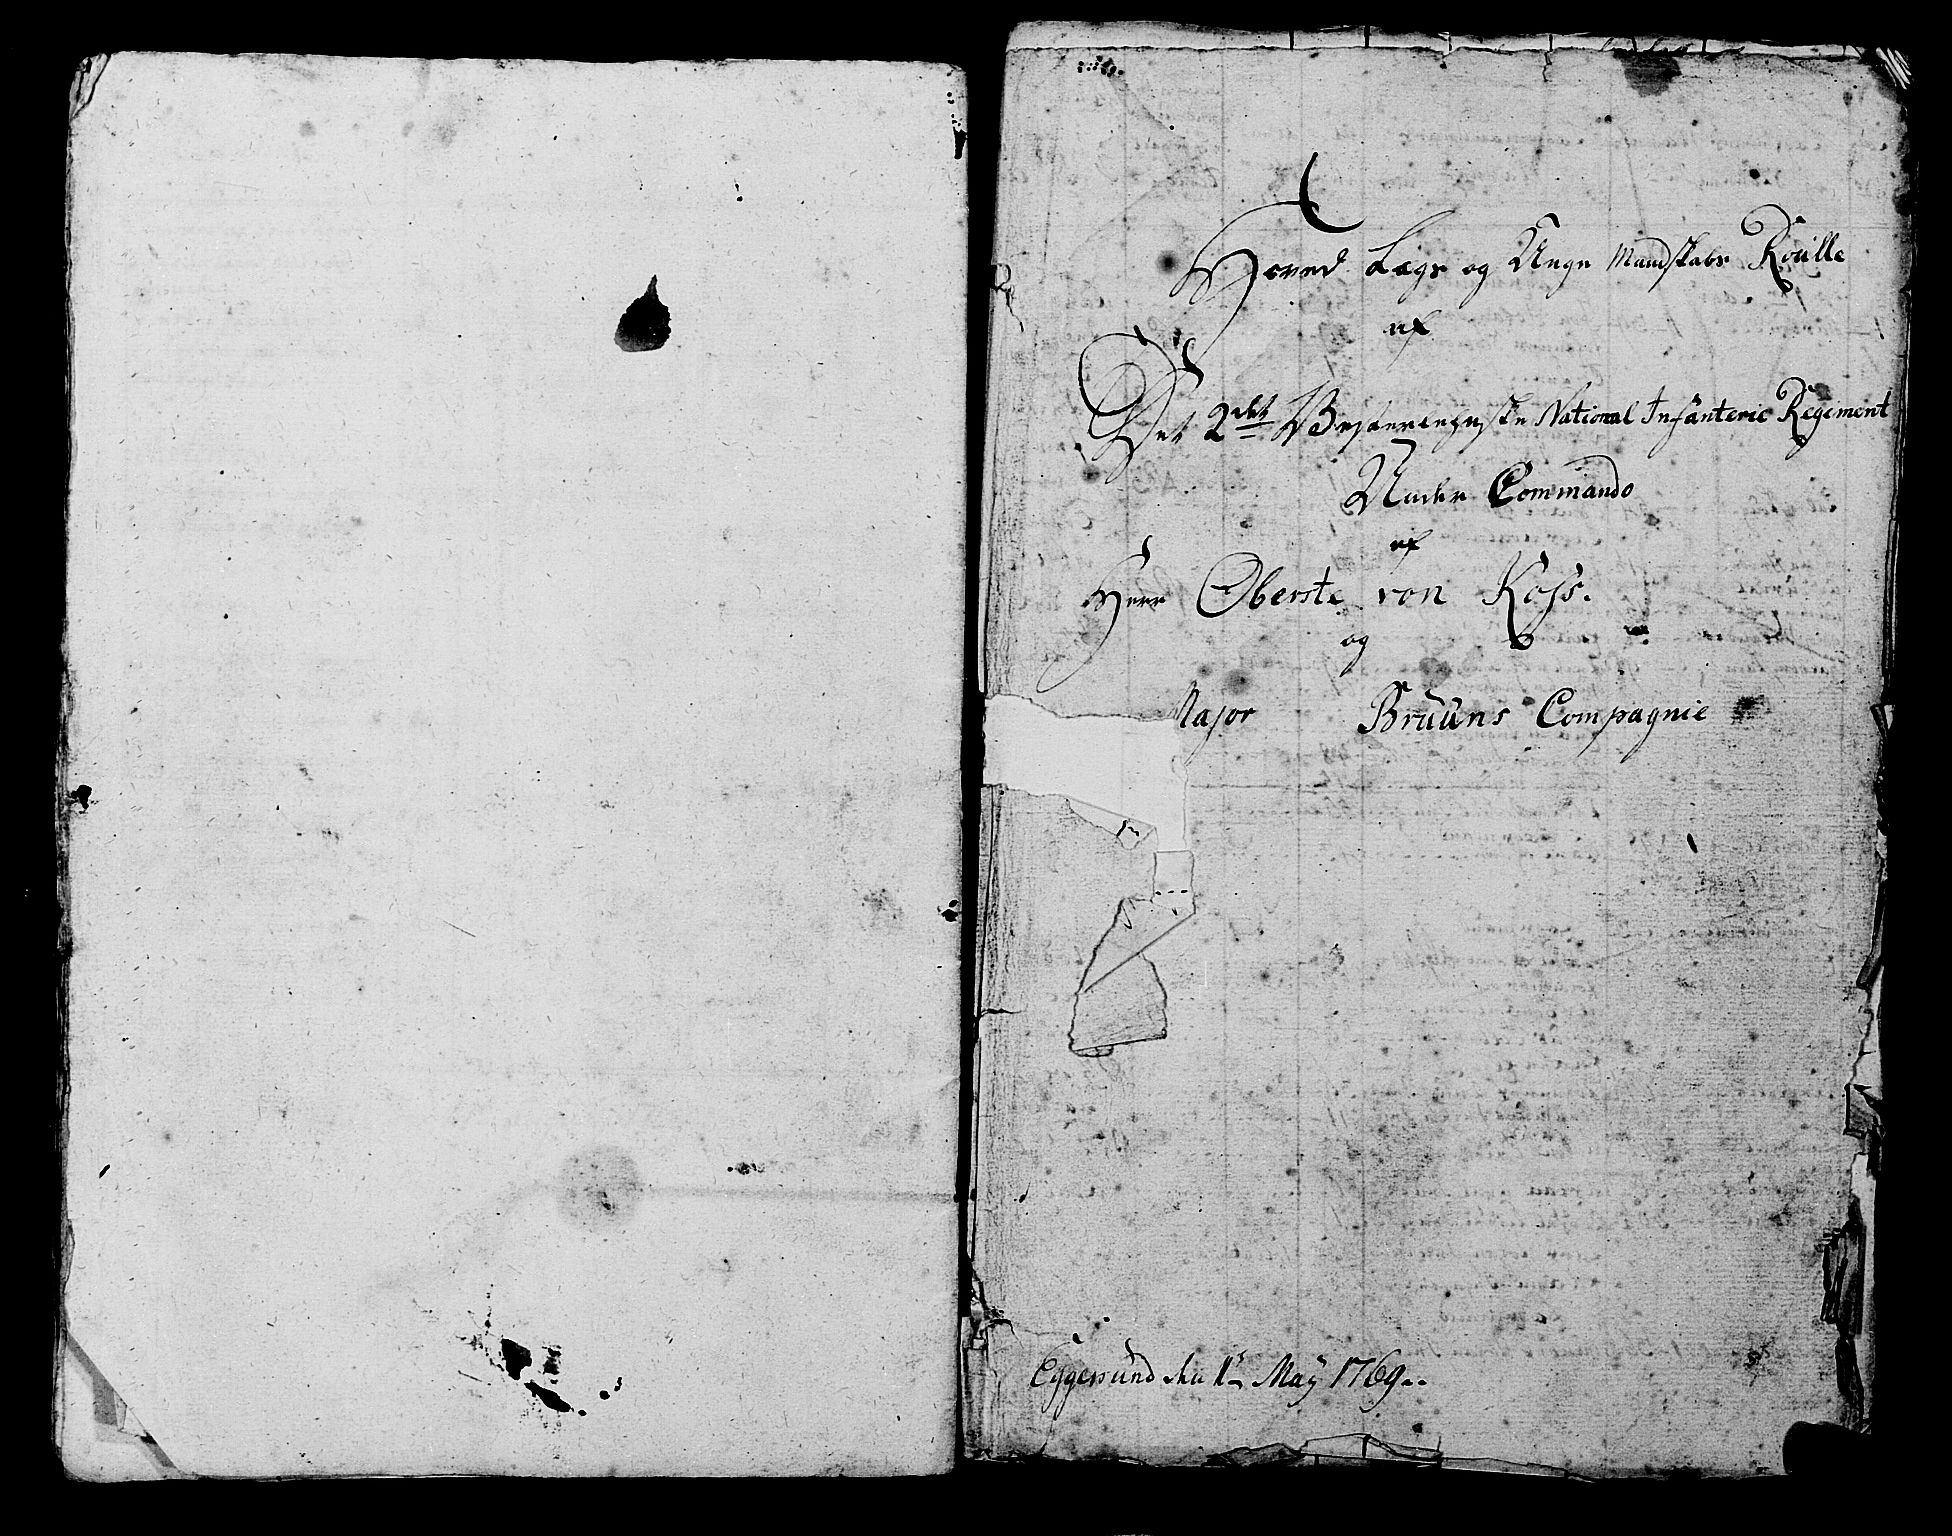 Hoved Lægs og Unge Mandskabs Roülle
af
Det 2det Westerlehnske National Infanterie Regiment
Under Commando
af
Herr Oberste von Kojs.
og
Major Bruüns Compagnie
Eggersünd den 1te May 1769..